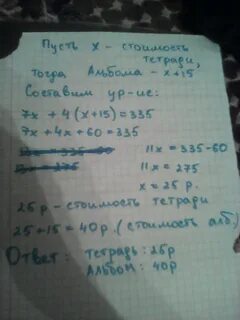 Пусть x - стоимость
тетради,
тогда Альбома - x+15
Составим ур-ие:
7x + 4(x+15)=335
7x + 4x + 60 = 335
11x = 335-60
11x = 275
x = 25 р.
25 р - стоимость тетради
25 + 15 = 40 р. (стоимость алб.)
Ответ: тетрадь: 25р
Альбом: 40р